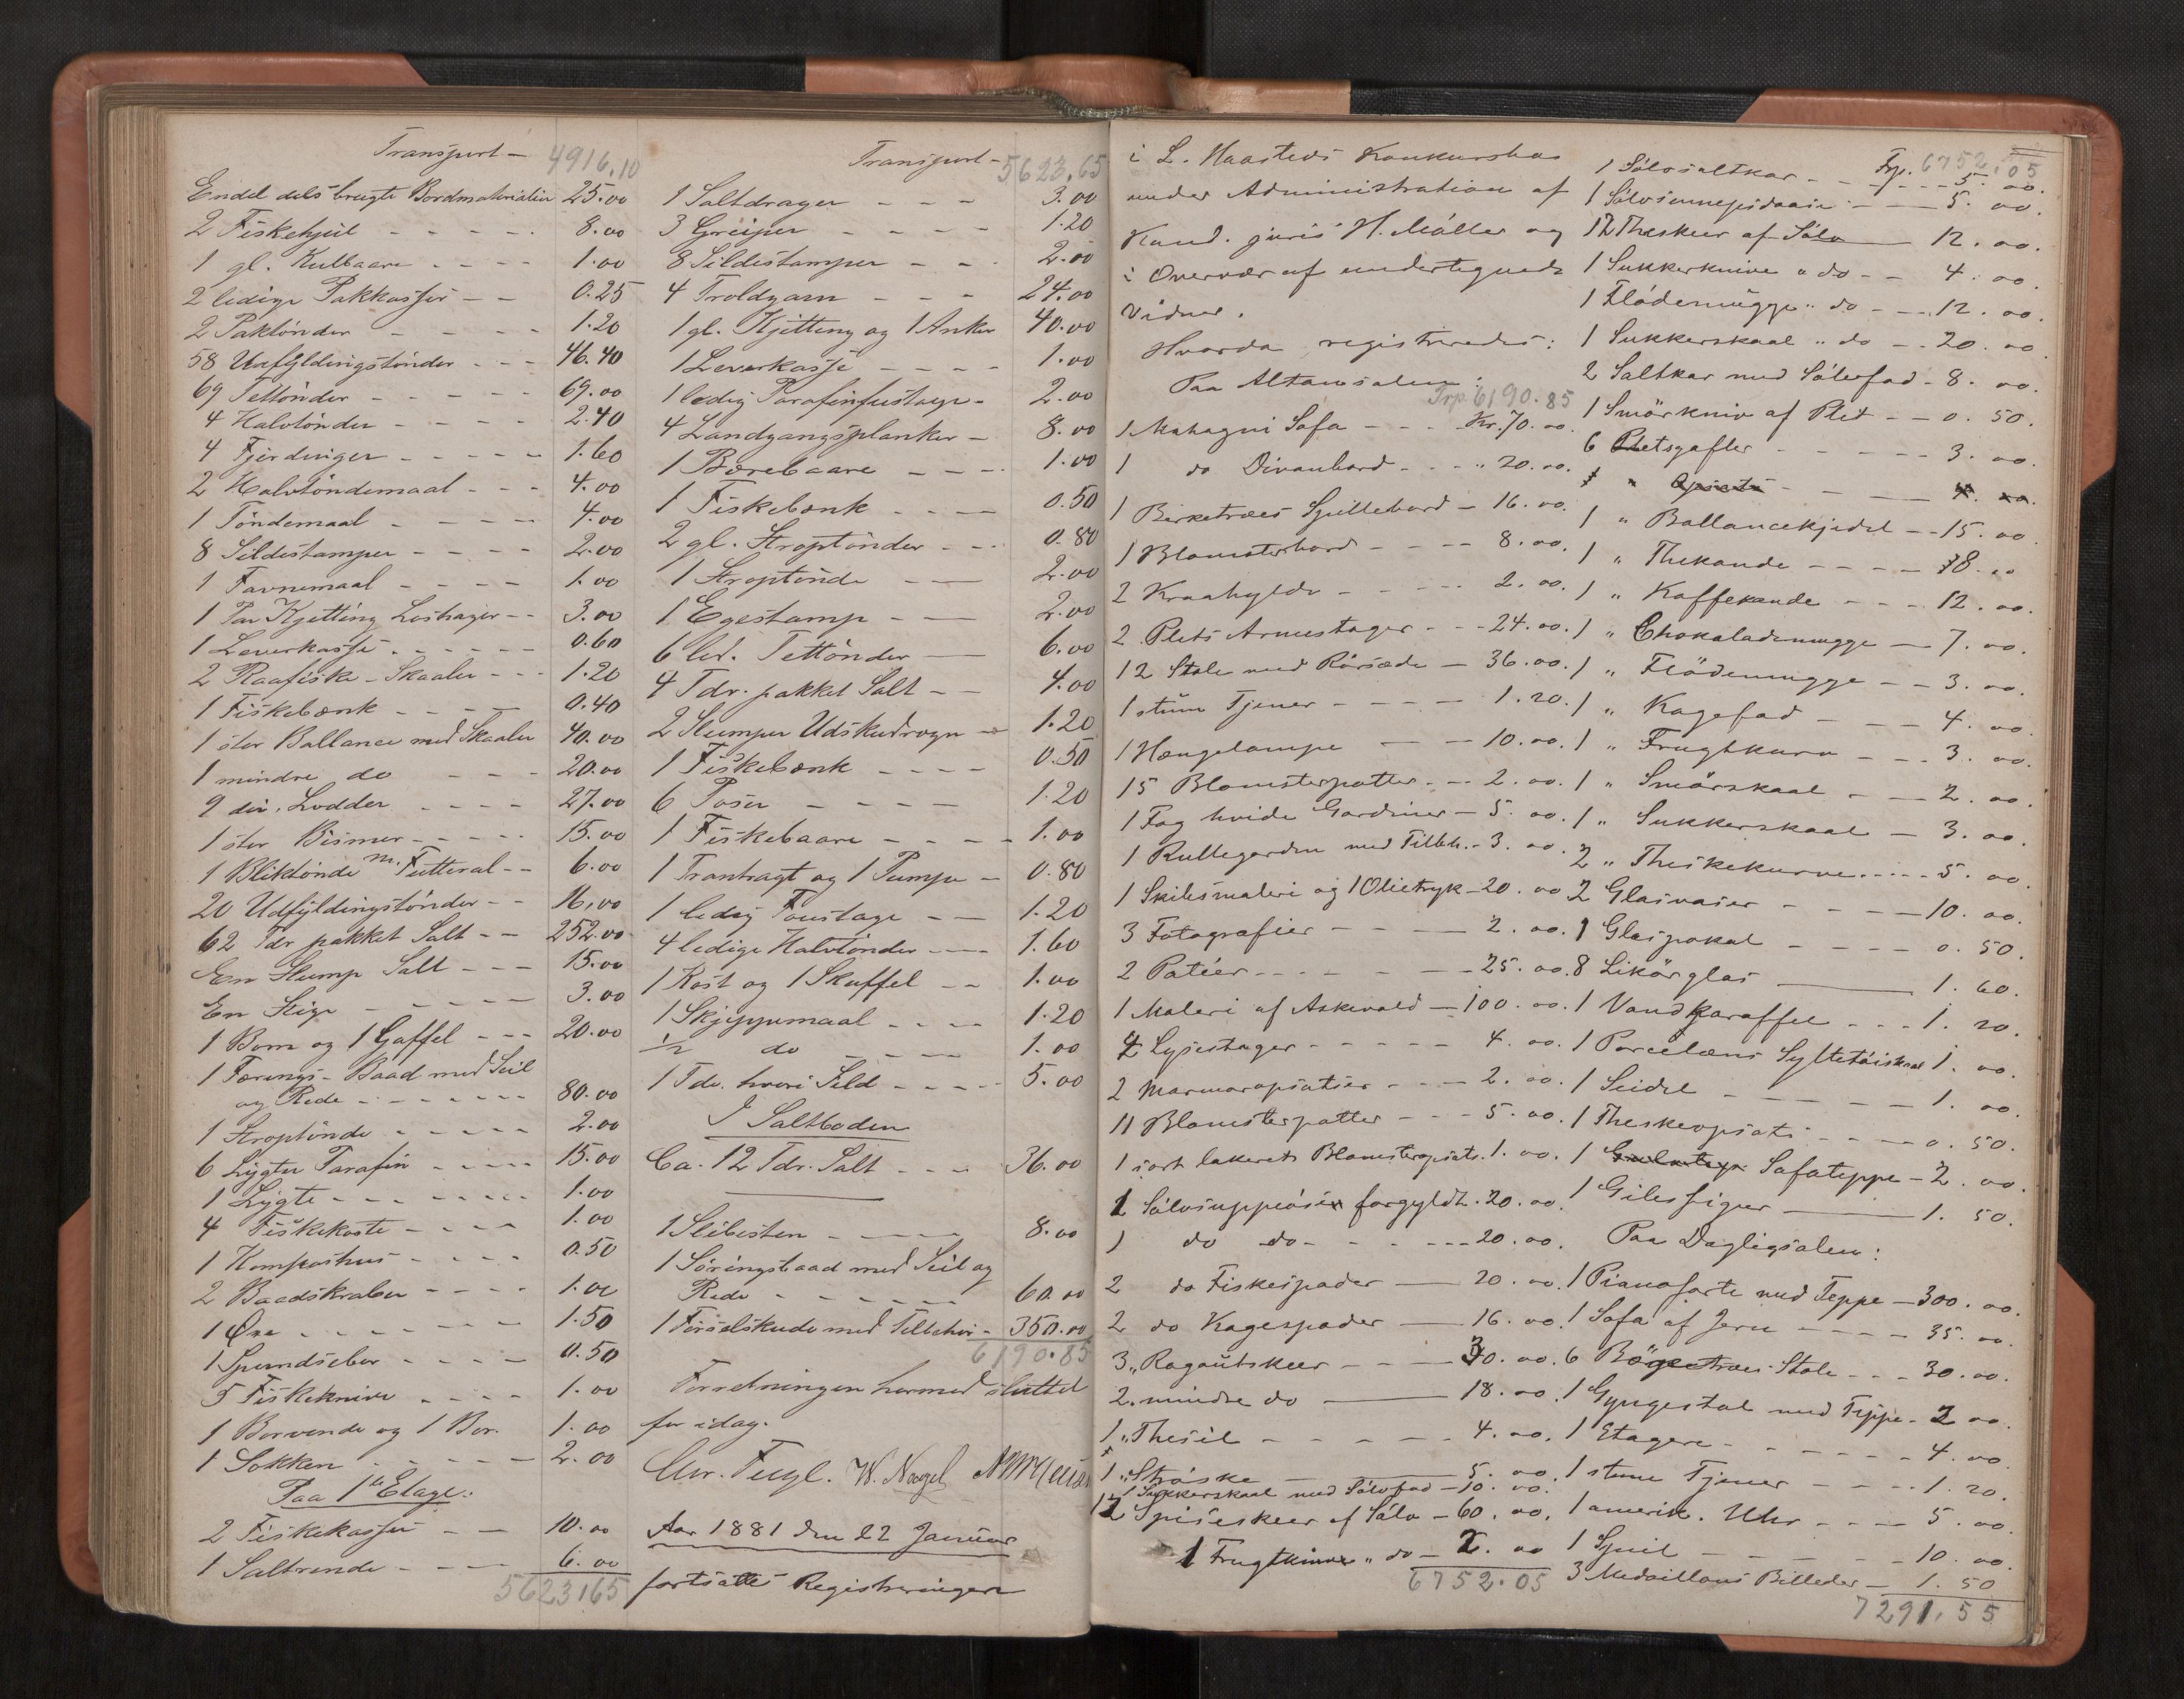 Transport - 4916.10
Endel dels brugte Bordmaterialier 25.00
2 Fiskehjul - - - - - 8.00
1 gl. Kulbaare - - - - 1.00
2 ledige Pakkasser - - 0.25
2 Paktönder - - - - 1.20
58 Udfyldingstönder - - - 46.40
69 Tettönder - - - - 69.00
4 Halvtönder - - - - 2.40
4 Fjerdinger - - - - - 1.60
2 Halvtöndemaal - - - 4.00
1 Töndemaal - - - - 4.00
8 Sildestamper - - - - 2.00
1 Favnemaal - - - - 1.00
1 Par Kjetting Loshager - - 3.00
1 Leverkasse - - - - - 0.60
2 Raafiske-Skaaler - - - 1.20
1 Fiskebænk - - - - 0.40
1 stor Ballance med Skaaler 40.00
1 mindre do - - - 20.00
9 div. Lodder - - - - 27.00
1 stor Bismer - - - - 15.00
1 Bliktönde m. Futteral - - 6.00
20 Udfyldingstönder - - 16.00
62 Tdr pakket Salt - - 252.00
En Slump Salt - - - 15.00
En Stige - - - - 3.00
1 Bom og 1 Gaffel - - - 20.00
1 Færings-Baad med Seil
og Rede - - - - - - - 80.00
1 Stroptönde - - - - - 2.00
6 Lygter Parafin - - - - 15.00
1 Lygte - - - - - - - 1.00
4 Fiskekoste - - - - 1.00
1 Kompashus - - - - 0.50
2 Baadskraber - - - - 1.00
1 Øxe - - - - - - - 1.50
1 Spundsebor - - - - 0.50
5 Fiskeknive - - - - 1.00
1 Borvende og 1 Bor. 1.00
1 Sokken - - - - - 2.00
Paa 1ste Etage:
2 Fiskekasser - - 10.00
1 Saltrende - - - - 6.00
5623,65
Transport - 5623,65
1 Saltdrager - - - 3.00
3 Greiper - - - - 1.20
8 Sildestamper - - - 2.00
4 Troldgarn - - - 24.00
1 gl. Kjetting og 1 Anker 40.00
1 Leverkasse - - - - 1.00
1 ledig Parafinfustage - 2.00
4 Landgangsplanker - 8.00
1 Børebaare - - - - 1.00
1 Fiskebænk - - - - 0.50
2 gl. Stroptönder - - - 0.80
1 Stroptönde - - - 2.00
1 Egestamp - - - 2.00
6 led. Tettönder - - 6.00
4 Tdr. pakket Salt - - 4.00
2 Slumper Udskudrogn - - 1.20
1 Fiskebænk - - - - 0.50
6 Poser - - - - 1.20
1 Fiskebaare - - - - 1.00
1 Trantragt og 1 Pumpe - 0.80
1 ledig Foustage - - - 1.20
4 ledige Halvtönder - - - 1.60
1 Rost og 1 Skuffel - - 1.00
1 Skjeppemaal - - - - 1.20
1/2 do - - - - 1.00
1 Tdr. hvori Sild - - - - 5.00
I Saltboden
Ca. 12 Tdr. Salt - - - 36.00
1 Slibesten - - - - 8.00
1 Söringsbaad med Seil og
Rede - - - - - - 60.00
1 Förselskude med Tilbehör - 350.00
6190.85
Forretningen hermed sluttet
for idag.
Chr. Fugl. W. Nagel
Aar 1881 den 22 Januar
fortsattes Registreringen
i L. Haasteds Konkursbo
under Administration af
Kand. juris H. Möller og
i Overvær af undertegnede
Vidner.
Hvorda registreredes:
Paa Altansalen:
Trp. 6190.85
1 Mahagni Sofa - - - Kr. 70.00.
1 do Divanbord - - - " 20.00.
1 Birketræes Spillebord - 16.00.
1 Blomsterbord - - - - 8.00.
2 Kraahylder - - - - 2.00.
2 Plets Armestager - - - 24.00.
12 Stole med Rörsæde - 36.00.
1 stum Tjener - - - - 1.20.
1 Hængelampe - - - 10.00.
15 Blomsterpotter - - - 2.00.
1 Fag hvide Gardiner - 5.00.
1 Rullegardin med Tilbh. - 3.00.
1 Skilsmaleri og 1 Olietryk - 20.00
3 Fotografier - - - - 2.00.
2 Patéer - - - - - 25.00.
1 Maleri af Askevold - 100.00.
4 Lysestager - - - - - 4.00.
2 Marmoropsatser - - - 2.00.
11 Blomsterpotter - - - 5.00.
1 sort lakeret Blomsteropsats. 1.00.
1 Sölvsuppeöse forgyldt. 20.00.
1 do do - - - - 20.00.
2 do Fiskespader - - 20.00.
2 do Kagespader - - 16.00.
3 " Ragoutskeer - - - 30.00.
2 mindre do - - 18.00.
1 " Thesil - - - - - 4.00.
1 " Ströske - - 5.00.
1 Sukkerskaal med Sölvfad - 10.00.
12 Spiseskeer af Sölv - 60.00.
1 Frugtkniv " do - 2.00
6752.05
Trp. 6752.05
1 Sölvsaltkar - - - - - 5.00.
1 Sölvsennepsdaase - - - 5.00.
12 Theskeer af Sölv - 12.00.
1 Sukkerknive " do - - 4.00.
1 Flödemugge " do - - - 12.00.
1 Sukkerskaal " do - - 20.00.
2 Saltkar med Sölvfod - 8.00.
1 Smörkniv af Plet - - 0.50.
6 Pletsgafler - - - - - 3.00.
1 " Opsats - - - - 4.00.
1 " Ballancekjedel - - 15.00.
1 " Thekande - - - - 8.00
1 " Kaffekande - - - 12.00.
1 " Chokolademugge - 7.00.
1 " Flödemugge - - 3.00.
1 " Kagefad - - - 4.00.
1 " Frugtkurv - - - 3.00.
1 " Smörskaal - - - 2.00.
1 " Sukkerskaal - 3.00.
2 " Theskekurve - - - - 5.00.
2 Glasvaser - - - - 10.00.
1 Glaspokal - - - - 0.50.
8 Likörglas - - 1.60.
1 Vandkaraffel - - - 1.20.
1 Porcelæns Syltetöiskaal 1.00.
1 Seidel - - - - - 1.00.
1 Theskeopsats - - - - 0.50.
1 Sofateppe - 2.00.
1 Gibsfigur - - 1.50.
Paa Dagligsalen:
1 Pianoforte med Teppe - 300.00.
1 Sofa af Jern - - - - 35.00.
6 Bögetræes Stole - - - 30.00.
1 Gyngestol med Teppe - 2.00.
1 Etagere - - - - - 4.00.
1 stum Tjener - - - - 1.20.
1 amerik. Uhr - - - 5.00.
1 Speil - - - - - 10.00.
3 Medaillons Billeder - 1.50
7291.55